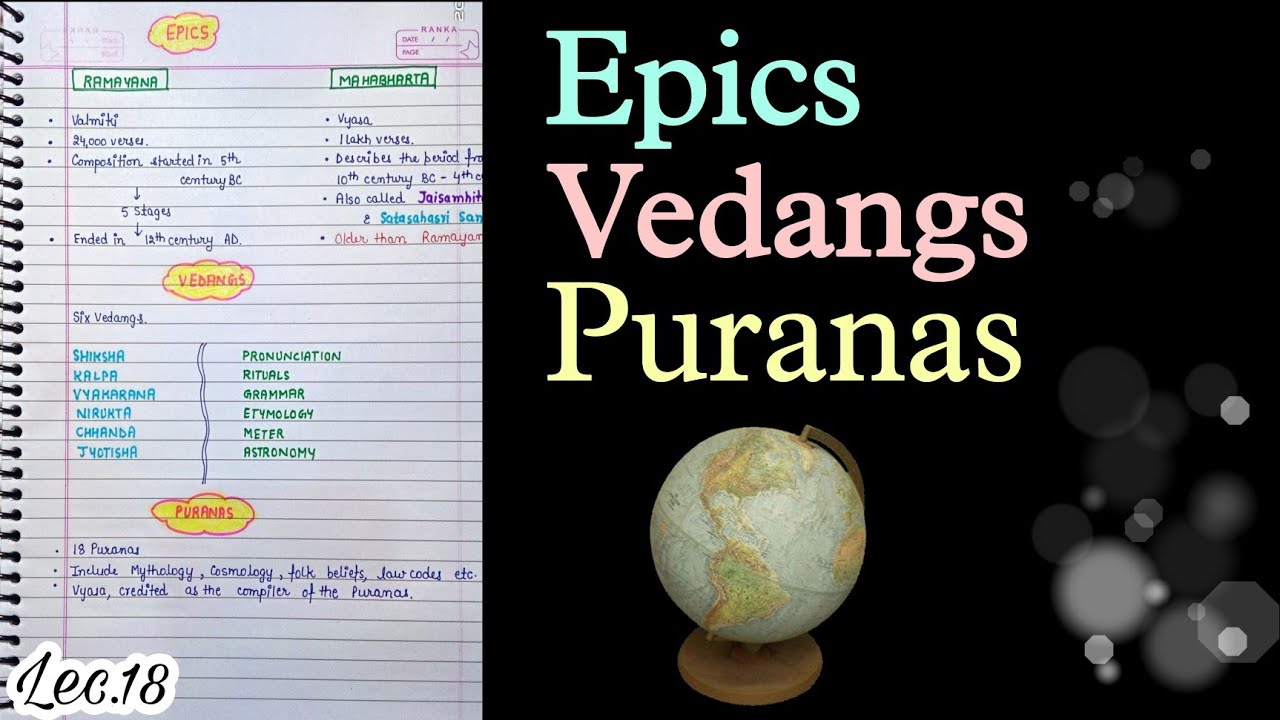 EPICS
RANKA
DATE / /
PAGE
RAMAYANA
MAHABHARTA
• Valmiki
• 24,000 verses.
• Composition started in 5th
century BC
↓
5 stages
↓
• Ended in 12th century AD.
• Vyasa
• 1 lakh verses.
• Describes the period fro
10th century BC - 4th c
• Also called Jaisamhit
& Satasahasri San
• Older than Ramayan
VEDANGS
Six Vedangs.
SHIKSHA PRONUNCIATION
KALPA RITUALS
VYAKARANA GRAMMAR
NIRUKTA ETYMOLOGY
CHHANDA METER
JYOTISHA ASTRONOMY
PURANAS
• 18 Puranas
• Include Mythology, Cosmology, folk beliefs, law codes etc.
• Vyasa, credited as the compiler of the Puranas.
Lec.18
Epics
Vedangs
Puranas